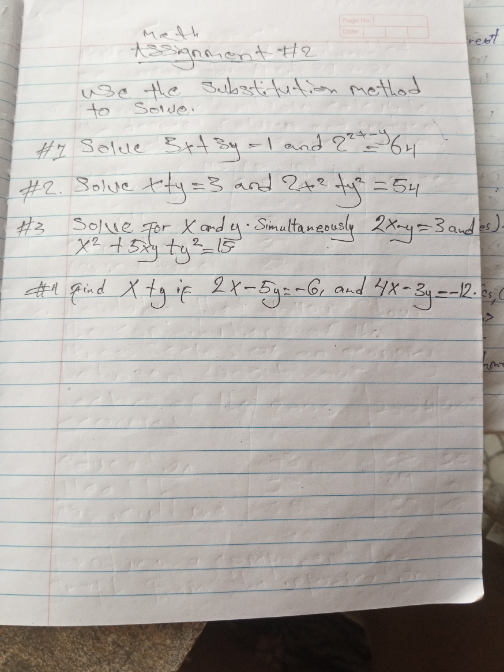 Page No.
Date:
Math
Assignment #2
use the substitution method
to solve.
#1 Solve 5x+3y=1 and 2^{2x-y}=64
#2. Solve x+y=3 and 2x²+y²=54
#3 Solve for x and y. Simultaneously 2x-y=3 and
x²+5xy+y²=15
#4 find x+y if 2x-5y=-6, and 4x-3y=-12.